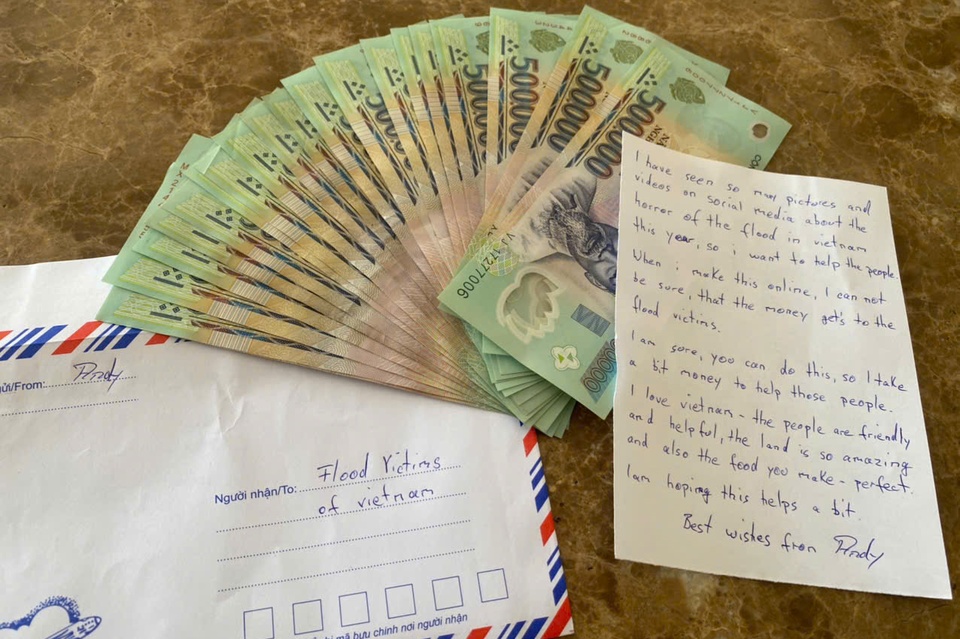 500000
500000
500000
500000
37277006
VN
500000
I have seen so many pictures and
videos on social media about the
horror of the flood in vietnam
this year, so i want to help the people.
When i make this online, I can not
be sure, that the money get's to the
flood victims.
I am sure, you can do this, so I take
a bit money to help those people.
I love vietnam - the people are friendly
and helpful, the land is so amazing
and also the food you make - perfect.
I am hoping this helps a bit.
Best wishes from Andy
ửi/From: Andy
Người nhận/To: Flood Victims
of vietnam
mã bưu chính nơi người nhận